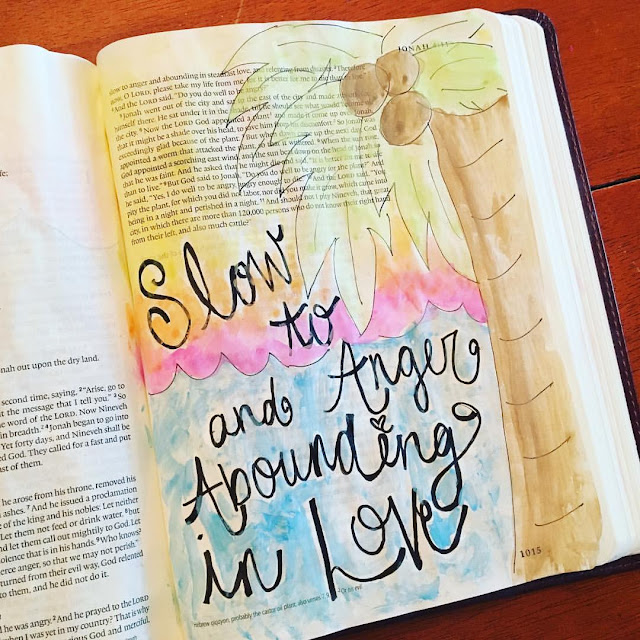 fe:
nah out upon the dry land.
second time, saying, ²“Arise, go to
t the message that I tell you.” ³So
e word of the LORD. Now Nineveh
n breadth. ⁴Jonah began to go into
Yet forty days, and Nineveh shall be
d God. They called for a fast and put
st of them.
he arose from his throne, removed his
ashes. ⁷And he issued a proclamation
e of the king and his nobles: Let neither
Let them not feed or drink water, ⁸but
nd let them call out mightily to God. Let
olence that is in his hands. ⁹Who knows?
erce anger, so that we may not perish.”
urned from their evil way, God relented
to them, and he did not do it.
he was angry. ²And he prayed to the LORD
when I was yet in my country? That is why
cious God and merciful,
JONAH 4:11
slow to anger and abounding in steadfast love, and relenting from disaster. ³Therefore
now, O LORD, please take my life from me, for it is better for me to die than to live.”
⁴And the LORD said, “Do you do well to be angry?”
⁵Jonah went out of the city and sat to the east of the city and made a
himself there. He sat under it in the shade, till he should see what would become of
the city. ⁶Now the LORD God appointed a plant and made it come up over Jonah,
that it might be a shade over his head, to save him from his discomfort. So Jonah was
exceedingly glad because of the plant. ⁷But when dawn came up the next day, God
appointed a worm that attacked the plant, so that it withered. ⁸When the sun rose,
God appointed a scorching east wind, and the sun beat down on the head of Jonah so
that he was faint. And he asked that he might die and said, “It is better for me to die
than to live.” ⁹But God said to Jonah, “Do you do well to be angry for the plant?” And
he said, “Yes, I do well to be angry, angry enough to die.” ¹⁰And the LORD said, “You
pity the plant, for which you did not labor, nor did you make it grow, which came into
being in a night and perished in a night. ¹¹And should not I pity Nineveh, that great
city, in which there are more than 120,000 persons who do not know their right hand
from their left, and also much cattle?”
Slow
to
and Anger
Abounding
in Love
1015
Hebrew qiqayon, probably the castor oil plant; also verses 7, 9, 10